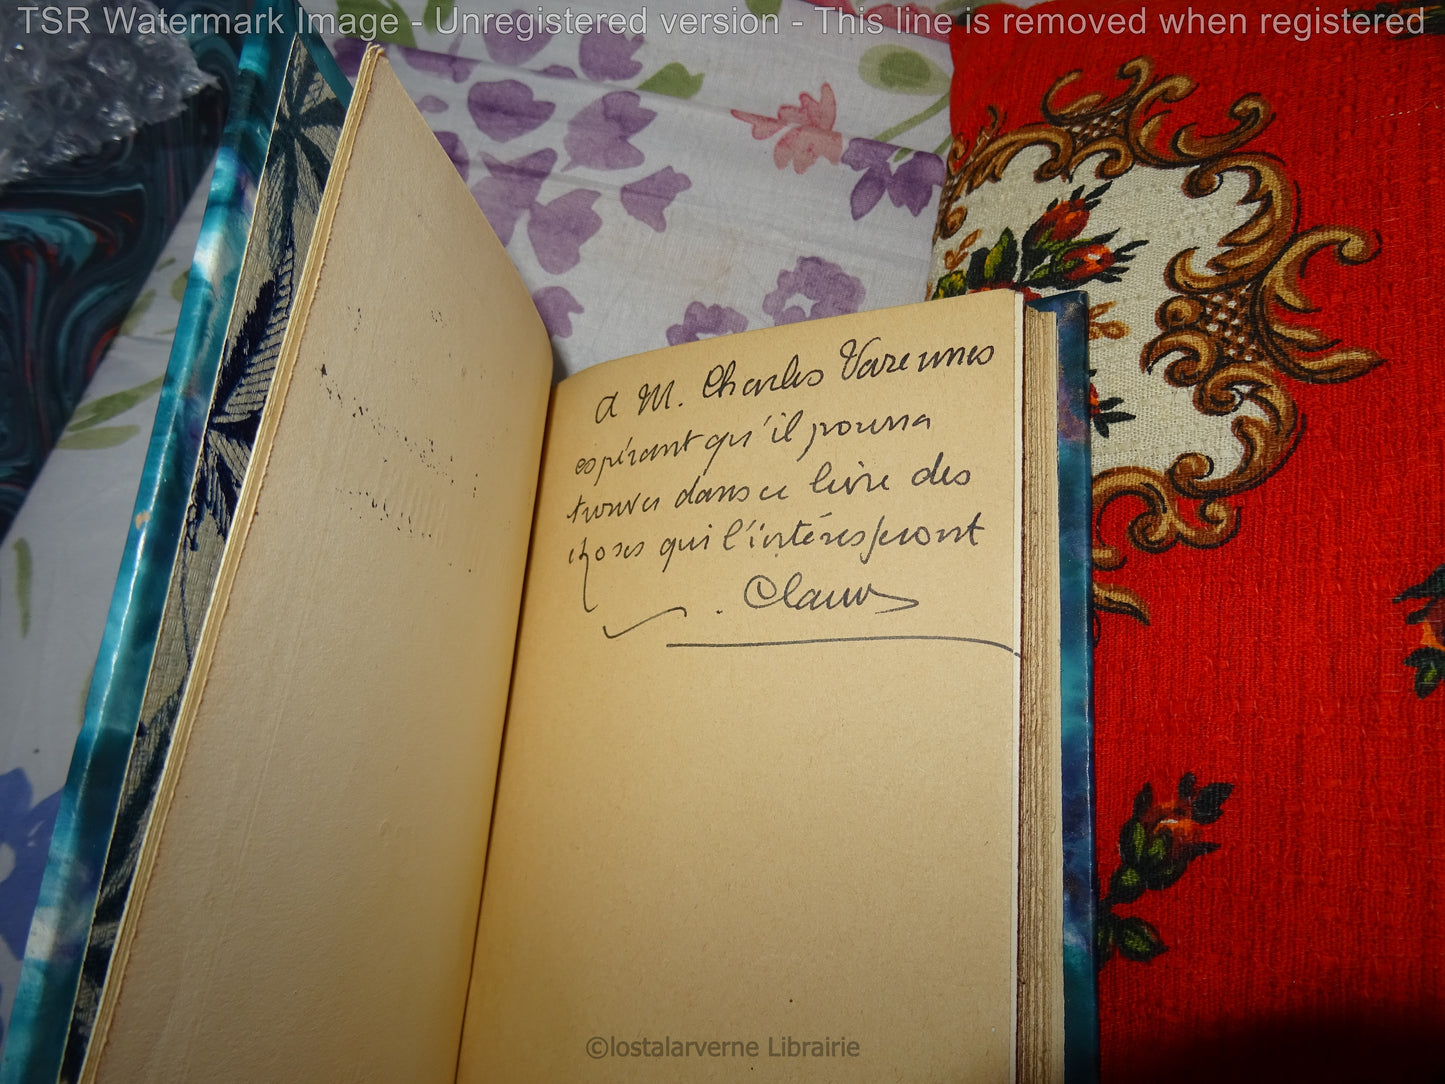 TSR Watermark Image - Unregistered version - This line is removed when registered
à M. Charles Varennes
espérant qu'il pourra
trouver dans ce livre des
choses qui l'intéresseront
©lostalarverne Librairie